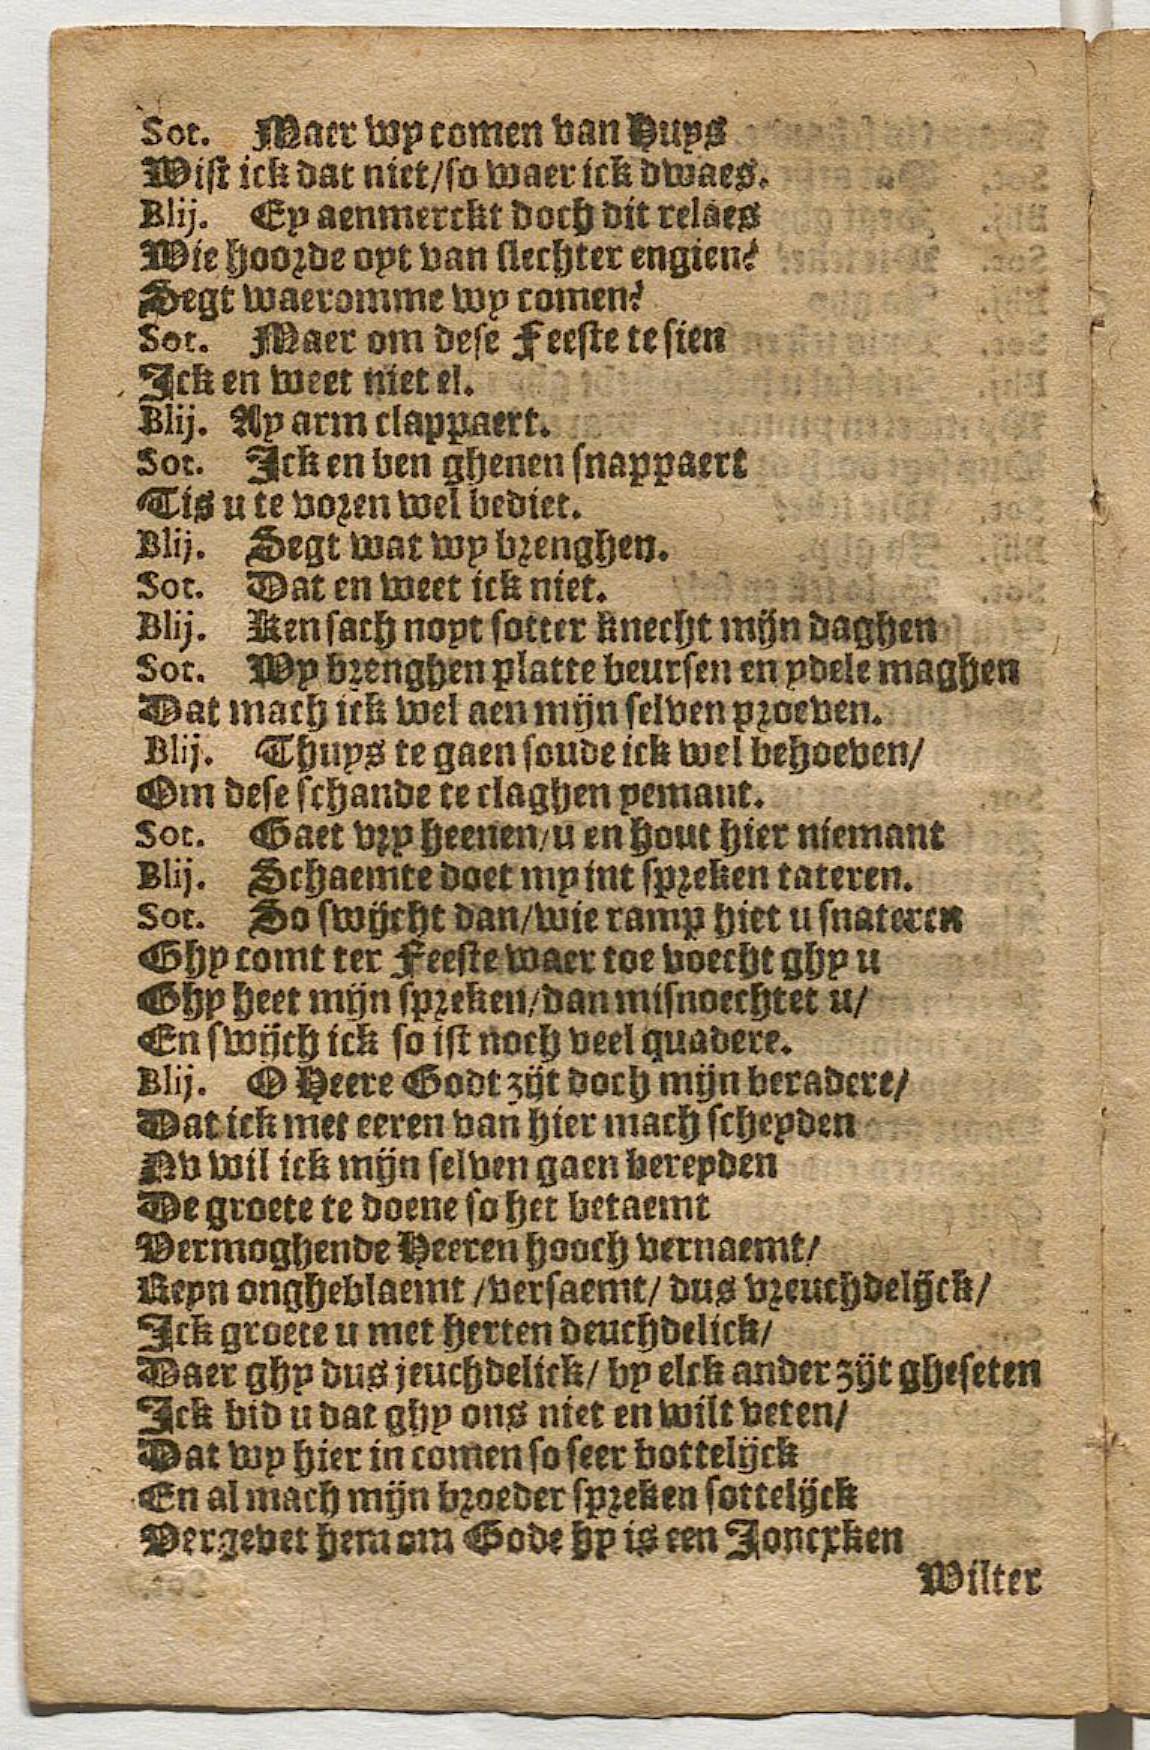 Sot. Maer wy comen van Huys
Wist ick dat niet/so waer ick dwaes.
Blij. Ey aenmerckt doch dit relaes
Wie hoorde oyt van slechter engien?
Segt waeromme wy comen?
Sot. Maer om dese Feeste te sien
Ick en weet niet el.
Blij. Ay arm clappaert.
Sot. Ick en ben ghenen snappaert
Tis u te voren wel bediet.
Blij. Segt wat wy brenghen.
Sot. Dat en weet ick niet.
Blij. Ken sach noyt sotter knecht mijn daghen
Sot. Wy brenghen platte beursen en ydele maghen
Dat mach ick wel aen mijn selven proeven.
Blij. Thuys te gaen soude ick wel behoeven/
Om dese schande te claghen yemant.
Sot. Gaet vry heenen/u en hout hier niemant
Blij. Schaemte doet my int spreken tateren.
Sot. So swijcht dan/wie ramp hiet u snateren
Ghy comt ter Feeste waer toe voecht ghy u
Ghy heet mijn spreken/dan misnoechtet u/
En swijch ick so ist noch veel quadere.
Blij. O Heere Godt zijt doch mijn beradere/
Dat ick met eeren van hier mach scheyden
Nv wil ick mijn selven gaen bereyden
De groete te doene so het betaemt
Vermoghende Heeren hooch vernaemt/
Reyn ongheblaemt /versaemt/ dus vreuchdelijck/
Ick groete u met herten deuchdelick/
Daer ghy dus jeuchdelick/ by elck ander zijt gheseten
Ick bid u dat ghy ons niet en wilt veten/
Dat wy hier in comen so seer bottelijck
En al mach mijn broeder spreken sottelijck
Vergevet hem om Gode hy is een Joncxken
Wilter